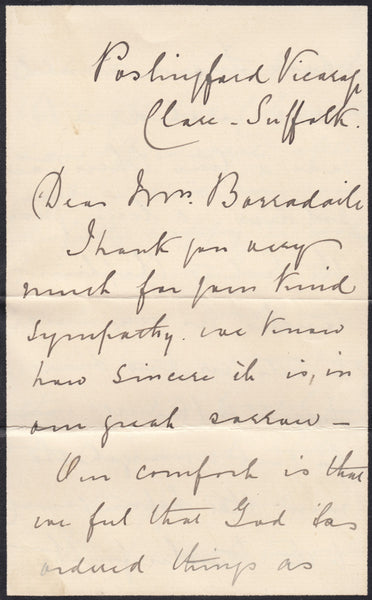 Poslingford Vicarage
Clare - Suffolk.
Dear Mrs. Borradaile
Thank you very
much for your kind
sympathy. we know
how sincere it is, in
our great sorrow -
Our comfort is that
we feel that God has
ordered things as